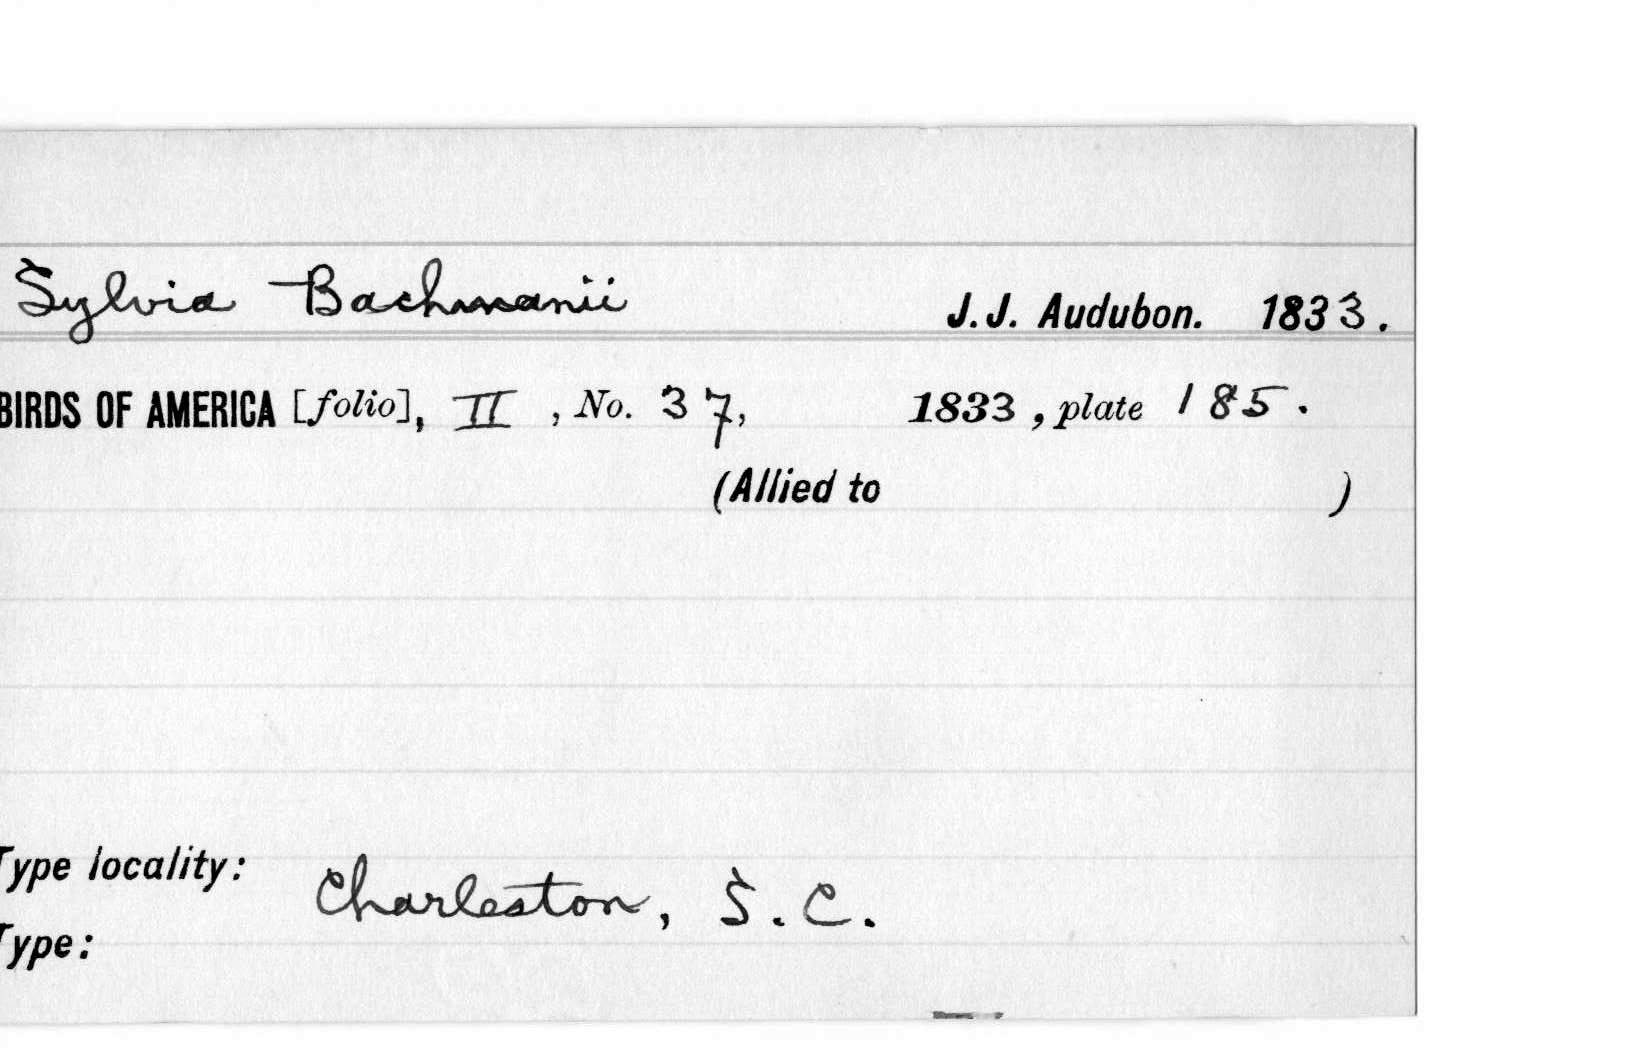 Sylvia Bachmanii J. J. Audubon. 1833.
BIRDS OF AMERICA [folio], II, No. 37, 1833, plate 185.
(Allied to )
Type locality: Charleston, S. C.
Type: